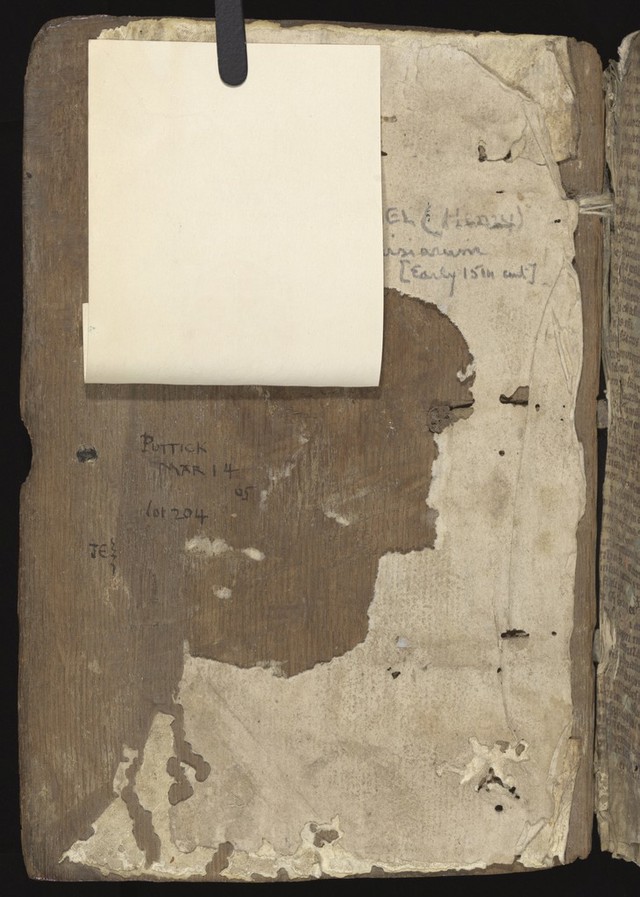 EL (Henry)
rsiarum
[Early 15th cent]
PUTTICK
MAR 14
05
lot 204
JE